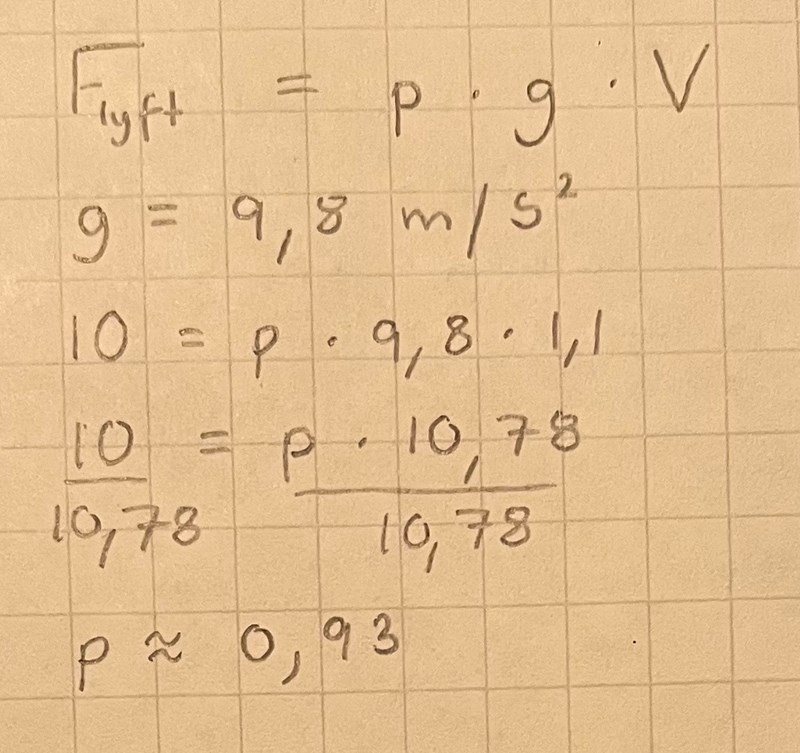 F_lyft = p · g · V
g = 9,8 m/s²
10 = p · 9,8 · 1,1
10/10,78 = p · 10,78/10,78
p ≈ 0,93